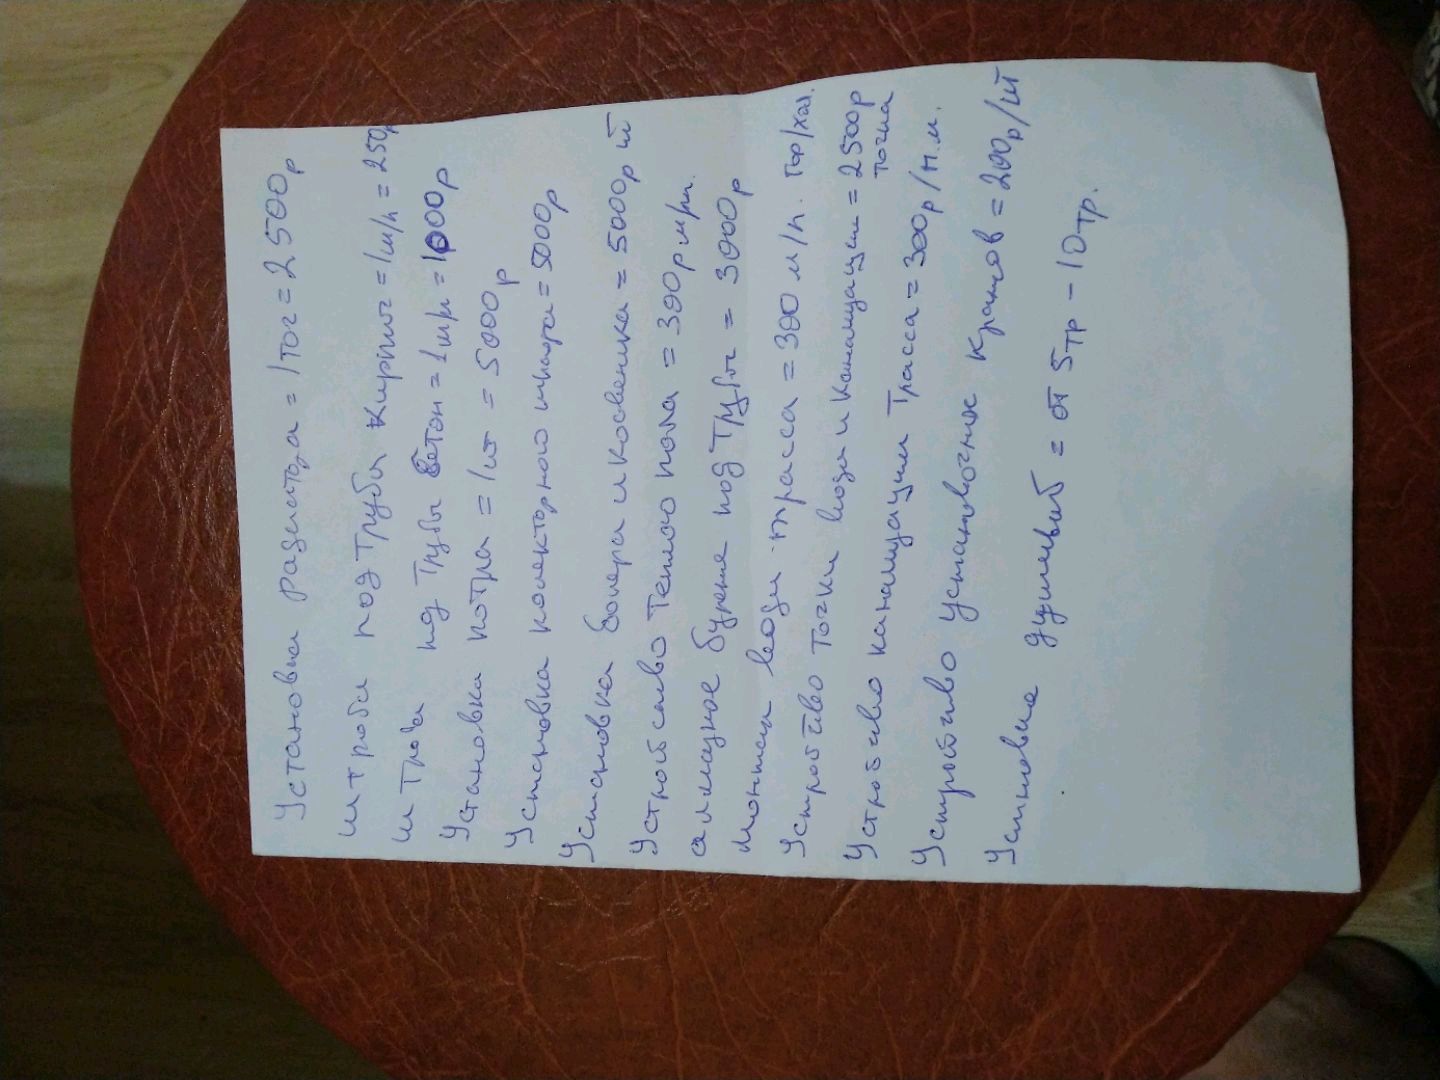 Установка радиатора = 1 точ = 2500р
штроба под трубы кирпич = 1 м/п = 250р
штроба под трубы бетон = 1 м/п = 1000р
Установка котла = 1 шт = 5000р
Установка колекторного шкафа = 5000р
Установка боллера и косвеника = 5000р шт
Устройсово теплого пола = 300р м/п.
алмазное бурение под трубы = 3000р
монтаж воды трасса = 300 м/п. гор/хол.
Устройтво точки воды и канализации = 2500р точка
Устройтво канализации трасса = 300р/п.м.
Устройтво установочных кранов = 200р/шт
Установка = от 5тр - 10тр.